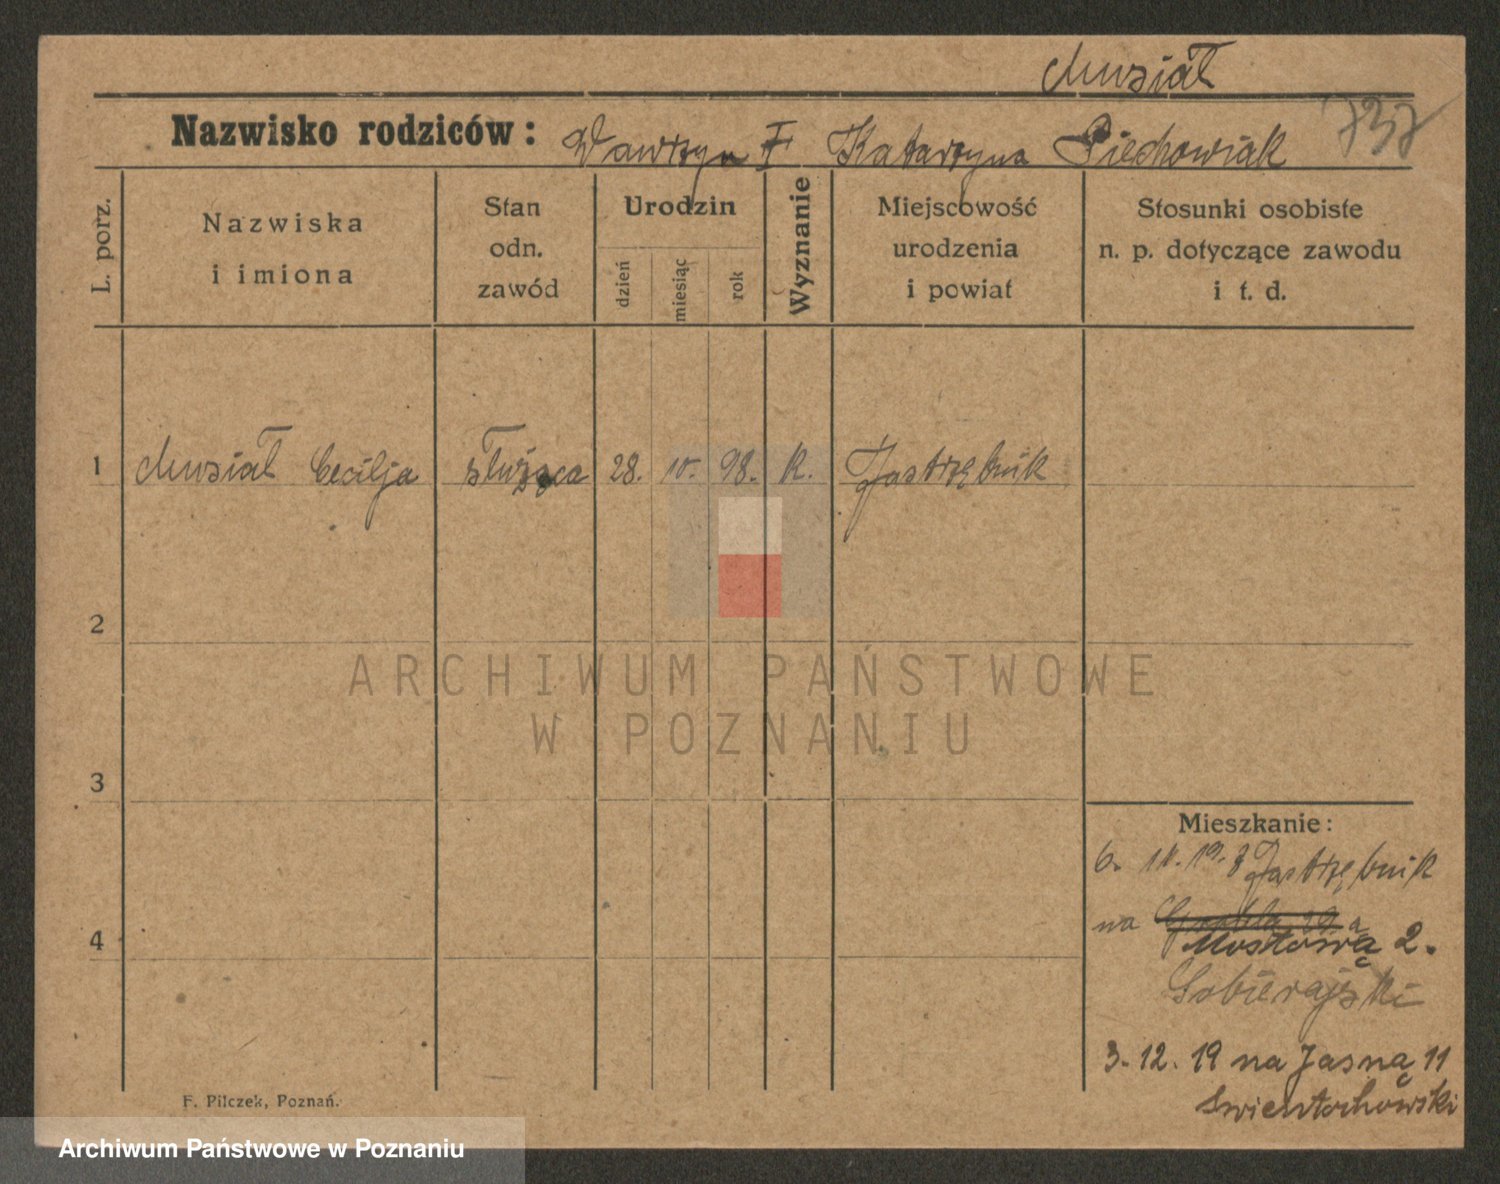 Musiał
737
Nazwisko rodziców: Wawrzyn Katarzyna Piechowiak
L. porz.
Nazwiska
i imiona
Stan
odn.
zawód
Urodzin
dzień
miesiąc
rok
Wyznanie
Miejscowość
urodzenia
i powiat
Stosunki osobiste
n. p. dotyczące zawodu
i t. d.
1 Musiał Cecilja służąca 28. 10. 98. K. Jastrzębnik
2
3
4
ARCHIWUM PAŃSTWOWE
W POZNANIU
Mieszkanie:
6. 11. 19. z Jastrzębnik
na Grobla 29 a
Mostową 2.
Sobierajski
3. 12. 19 na Jasną 11
Swientochowski
F. Pilczek, Poznań.
Archiwum Państwowe w Poznaniu